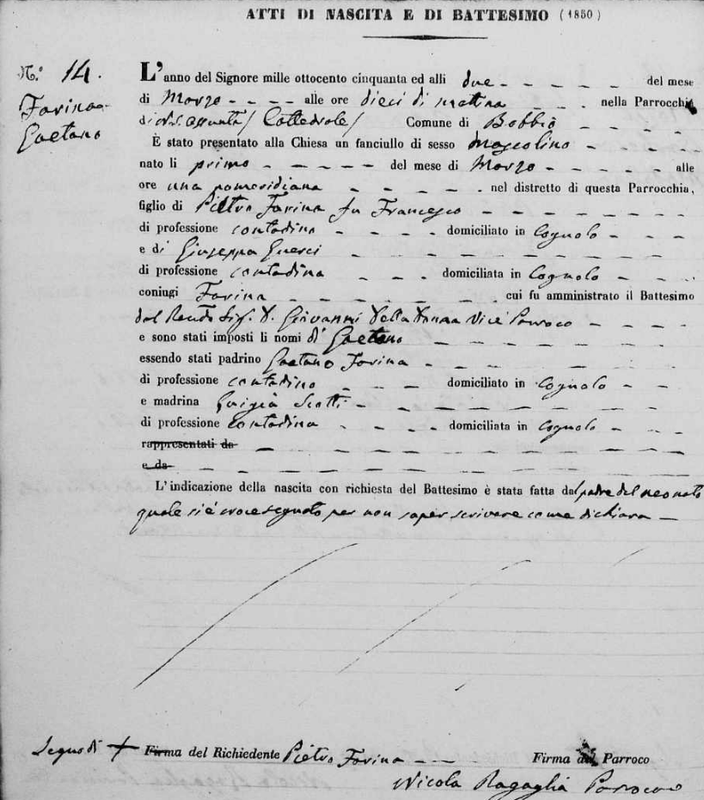 ATTI DI NASCITA E DI BATTESIMO (1850)
N.° 14.
Farina
Gaetano
L'anno del Signore mille ottocento cinquanta ed alli due - - - - - del mese
di Marzo - - - - alle ore dieci di mattina - - - - nella Parrocchia
di N.S. Assunta / Cattedrale / Comune di Bobbio - - - - -
È stato presentato alla Chiesa un fanciullo di sesso Mascolino - - - -
nato li primo - - - - - del mese di Marzo - - - - alle
ore una pomeridiana - - - - - nel distretto di questa Parrocchia,
figlio di Pietro Farina fu Francesco - - - - - - -
di professione contadino - - - - domiciliato in Cognolo - - -
e di Giuseppa Guerci - - - - - - - - -
di professione contadina - - - domiciliata in Cognolo - - -
coniugi Farina - - - - - - - cui fu amministrato il Battesimo
dal Revdo Sig. D. Giovanni Della Vice Parroco - - - -
e sono stati imposti li nomi di Gaetano - - - - - - -
essendo stati padrino Gaetano Farina - - - - - - -
di professione contadino - - - - domiciliato in Cognolo - - -
e madrina Luigia Scotti - - - - - - - -
di professione contadina - - - - domiciliata in Cognolo - - -
rappresentati da - - - - - - - - -
e da - - - - - - - - - -
L'indicazione della nascita con richiesta del Battesimo è stata fatta dal padre del neonato
quale si è croce segnato per non saper scrivere come dichiara -
Segno di + Firma del Richiedente Pietro Farina - - Firma del Parroco
Nicola Ragaglia Parroco